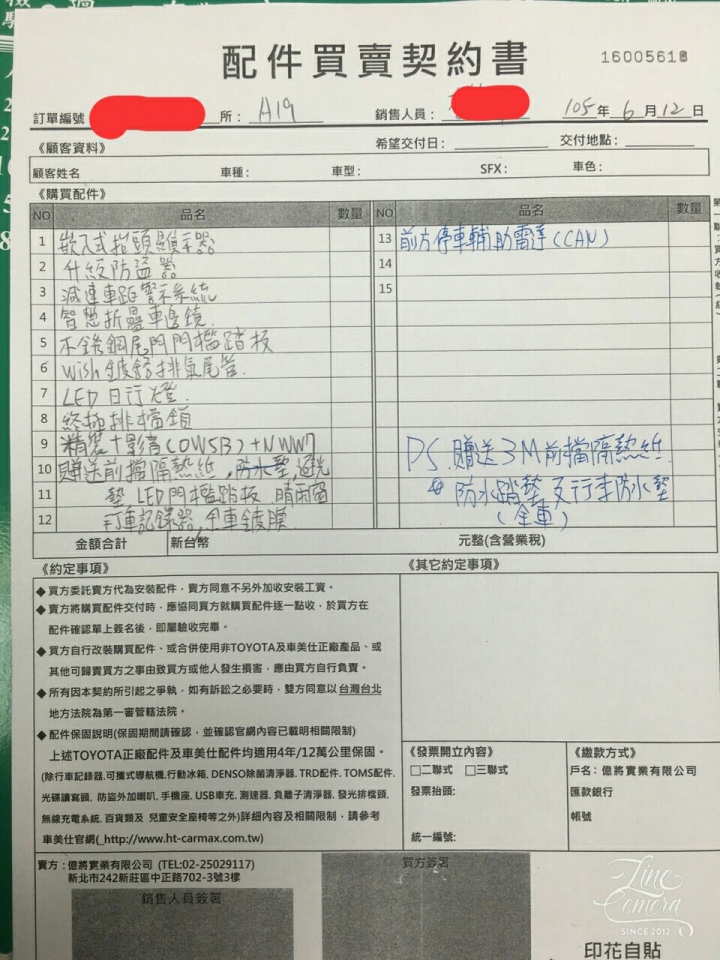 配件買賣契約書
16005618
訂單編號
所：A19
銷售人員：
105年6月12日
《顧客資料》
希望交付日：
交付地點：
顧客姓名
車種：
車型：
SFX：
車色：
《購買配件》
NO 品名 數量 NO 品名 數量
1 嵌入式抬頭顯示器
2 升級防盜器
3 減速車距警示系統
4 智慧折疊車邊鏡.
5 不銹鋼尾門門檻踏板
6 wish鍍鉻排氣尾管.
7 LED日行燈.
8 終極排檔鎖
9 精裝+影音(OWSB)+NWW7
10 贈送前擋隔熱紙.防水墊,避光
11 墊 LED門檻踏板 晴雨窗
12 行車記錄器,全車鍍膜
13 前方停車輔助雷達(CAN)
14
15
PS.贈送3M前擋隔熱紙.
防水踏墊及行李防水墊
(全車)
金額合計
新台幣
元整(含營業稅)
《約定事項》
◆買方委託賣方代為安裝配件，賣方同意不另外加收安裝工資。
◆賣方將購買配件交付時，應協同買方就購買配件逐一點收，於買方在
配件確認單上簽名後，即屬驗收完畢。
◆買方自行改裝購買配件、或合併使用非TOYOTA及車美仕正廠產品、或
其他可歸責買方之事由致買方或他人發生損害，應由買方自行負責。
◆所有因本契約所引起之爭執，如有訴訟之必要時，雙方同意以台灣台北
地方法院為第一審管轄法院。
◆配件保固說明(保固期間請確認，並確認官網內容已載明相關限制)
上述TOYOTA正廠配件及車美仕配件均適用4年/12萬公里保固。
(除行車記錄器,可攜式導航機,行動冰箱, DENSO除菌清淨器, TRD配件, TOMS配件,
光碟讀寫頭, 防盜外加喇叭, 手機座, USB車充, 測速器, 負離子清淨器, 發光排檔頭,
無線充電系統, 百貨類及 兒童安全座椅等之外)詳細內容及相關限制，請參考
車美仕官網(_http://www.ht-carmax.com.tw)
《其它約定事項》
《發票開立內容》
□二聯式 □三聯式
發票抬頭：
統一編號:
《繳款方式》
戶名：億將實業有限公司
匯款銀行
帳號
賣方：億將實業有限公司 (TEL:02-25029117)
新北市242新莊區中正路702-3號3樓
銷售人員簽署
買方簽署
印花自貼
Line
Camera
SINCE 2012